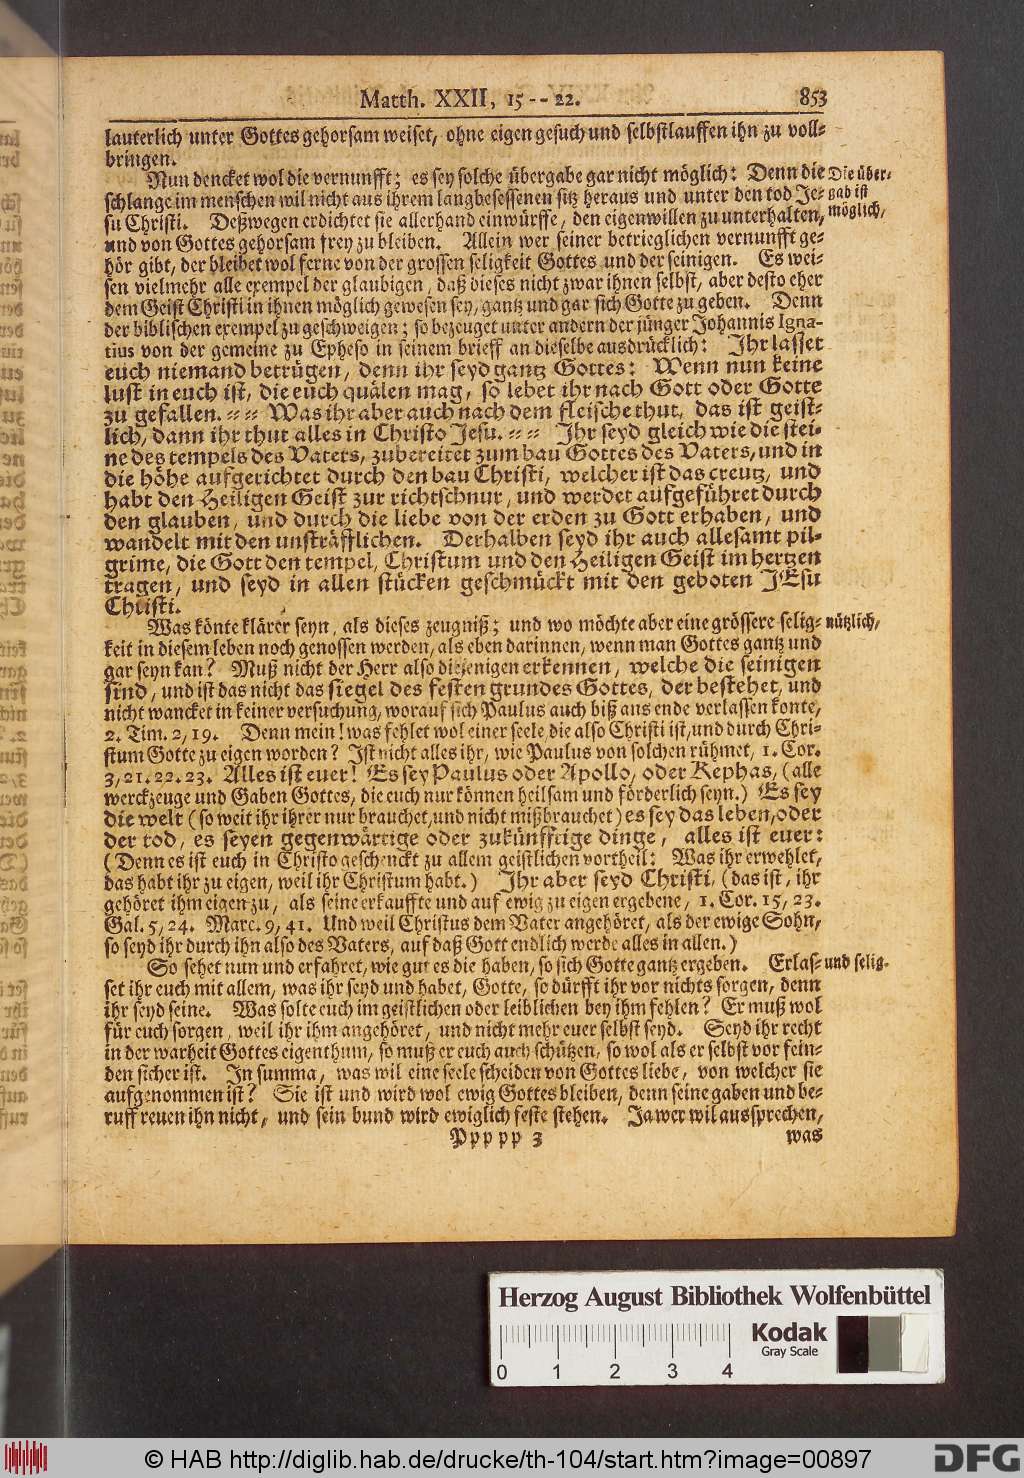 Matth. XXII, 15--22. 853
lauterlich unter Gottes gehorsam weiset, ohne eigen gesuch und selbstlauffen ihn zu voll⸗
bringen.
Nun dencket wol die vernunfft; es sey solche übergabe gar nicht möglich: Denn die
Die über⸗
schlange im menschen wil nicht aus ihrem langbesessenen sitz heraus und unter den tod Je⸗
gab ist
su Christi. Deßwegen erdichtet sie allerhand einwürffe, den eigenwillen zu unterhalten,
möglich,
und von Gottes gehorsam frey zu bleiben. Allein wer seiner betrieglichen vernunfft ge⸗
hör gibt, der bleibet wol ferne von der grossen seligkeit Gottes und der seinigen. Es wei⸗
sen vielmehr alle exempel der glaubigen, daß dieses nicht zwar ihnen selbst, aber desto eher
dem Geist Christi in ihnen möglich gewesen sey, gantz und gar sich Gotte zu geben. Denn
der biblischen exempel zu geschweigen; so bezeuget unter andern der jünger Johannis Igna⸗
tius von der gemeine zu Epheso in seinem brieff an dieselbe ausdrücklich: Ihr lasset
euch niemand betrügen, denn ihr seyd gantz Gottes: Wenn nun keine
lust in euch ist, die euch quälen mag, so lebet ihr nach Gott oder Gotte
zu gefallen. ⸗⸗ ⸗⸗ Was ihr aber auch nach dem fleische thut, das ist geist⸗
lich, dann ihr thut alles in Christo Jesu. ⸗⸗ ⸗⸗ Ihr seyd gleich wie die stei⸗
ne des tempels des Vaters, zubereitet zum bau Gottes des Vaters, und in
die höhe aufgerichtet durch den bau Christi, welcher ist das creutz, und
habt den Heiligen Geist zur richtschnur, und werdet aufgeführet durch
den glauben, und durch die liebe von der erden zu Gott erhaben, und
wandelt mit den unsträfflichen. Derhalben seyd ihr auch allesamt pil⸗
grime, die Gott den tempel, Christum und den Heiligen Geist im hertzen
tragen, und seyd in allen stücken geschmückt mit den geboten JEsu
Christi.
Was könte klärer seyn, als dieses zeugniß; und wo möchte aber eine grössere selig⸗
nützlich,
keit in diesem leben noch genossen werden, als eben darinnen, wenn man Gottes gantz und
gar seyn kan? Muß nicht der Herr also diejenigen erkennen, welche die seinigen
sind, und ist das nicht das siegel des festen grundes Gottes, der bestehet, und
nicht wancket in keiner versuchung, worauf sich Paulus auch biß ans ende verlassen konte,
2. Tim. 2, 19. Denn mein! was fehlet wol einer seele die also Christi ist, und durch Chri⸗
stum Gotte zu eigen worden? Ist nicht alles ihr, wie Paulus von solchen rühmet, 1. Cor.
3, 21. 22. 23. Alles ist euer! Es sey Paulus oder Apollo, oder Kephas, (alle
werckzeuge und Gaben Gottes, die euch nur können heilsam und förderlich seyn.) Es sey
die welt (so weit ihr ihrer nur brauchet, und nicht mißbrauchet) es sey das leben, oder
der tod, es seyen gegenwärtige oder zukünfftige dinge, alles ist euer:
(Denn es ist euch in Christo geschenckt zu allem geistlichen vortheil: Was ihr erwehlet,
das habt ihr zu eigen, weil ihr Christum habt.) Ihr aber seyd Christi, (das ist, ihr
gehöret ihm eigen zu, als seine erkauffte und auf ewig zu eigen ergebene, 1. Cor. 15, 23.
Gal. 5, 24. Marc. 9, 41. Und weil Christus dem Vater angehöret, als der ewige Sohn,
so seyd ihr durch ihn also des Vaters, auf daß Gott endlich werde alles in allen.)
So sehet nun und erfahret, wie gut es die haben, so sich Gotte gantz ergeben. Erlas⸗
und selig.
set ihr euch mit allem, was ihr seyd und habet, Gotte, so dürfft ihr vor nichts sorgen, denn
ihr seyd seine. Was solte euch im geistlichen oder leiblichen bey ihm fehlen? Er muß wol
für euch sorgen, weil ihr ihm angehöret, und nicht mehr euer selbst seyd. Seyd ihr recht
in der warheit Gottes eigenthum, so muß er euch auch schützen, so wol als er selbst vor fein⸗
den sicher ist. In summa, was wil eine seele scheiden von Gottes liebe, von welcher sie
aufgenommen ist? Sie ist und wird wol ewig Gottes bleiben, denn seine gaben und be⸗
ruff reuen ihn nicht, und sein bund wird ewiglich feste stehen. Ja wer wil aussprechen,
Pp pp pp 3 was
Herzog August Bibliothek Wolfenbüttel
Kodak
Gray Scale
0 1 2 3 4
© HAB http://diglib.hab.de/drucke/th-104/start.htm?image=00897
DFG